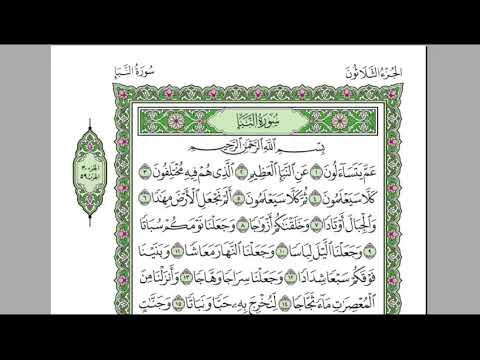 الجزء الثلاثون
سورة النبإ
سورة النبإ
بسم الله الرحمن الرحيم
عَمَّ يَتَسَآءَلُونَ ١ عَنِ ٱلنَّبَإِ ٱلْعَظِيمِ ٢ ٱلَّذِى هُمْ فِيهِ مُخْتَلِفُونَ ٣
كَلَّا سَيَعْلَمُونَ ٤ ثُمَّ كَلَّا سَيَعْلَمُونَ ٥ أَلَمْ نَجْعَلِ ٱلْأَرْضَ مِهَٰدًا ٦
وَٱلْجِبَالَ أَوْتَادًا ٧ وَخَلَقْنَٰكُمْ أَزْوَٰجًا ٨ وَجَعَلْنَا نَوْمَكُمْ سُبَاتًا
٩ وَجَعَلْنَا ٱلَّيْلَ لِبَاسًا ١٠ وَجَعَلْنَا ٱلنَّهَارَ مَعَاشًا ١١ وَبَنَيْنَا
فَوْقَكُمْ سَبْعًا شِدَادًا ١٢ وَجَعَلْنَا سِرَاجًا وَهَّاجًا ١٣ وَأَنزَلْنَا مِنَ
ٱلْمُعْصِرَٰتِ مَآءً ثَجَّاجًا ١٤ لِّنُخْرِجَ بِهِۦ حَبًّا وَنَبَاتًا ١٥ وَجَنَّٰتٍ
الجزء ٣٠
الحزب ٥٩